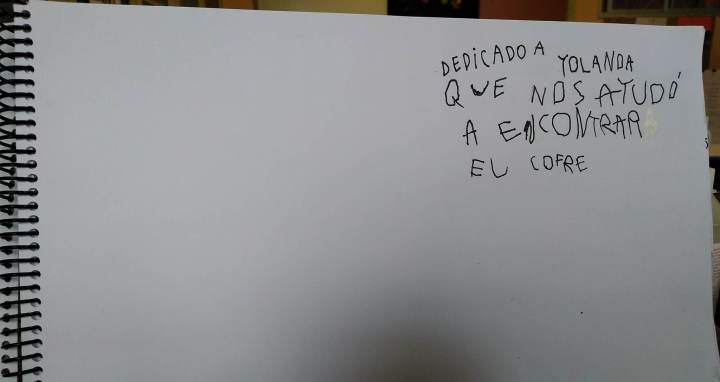 DEDiCADO A YOLANDA
QUE NOS AYUDÓ
A ENCONTRAR
EL COFRE